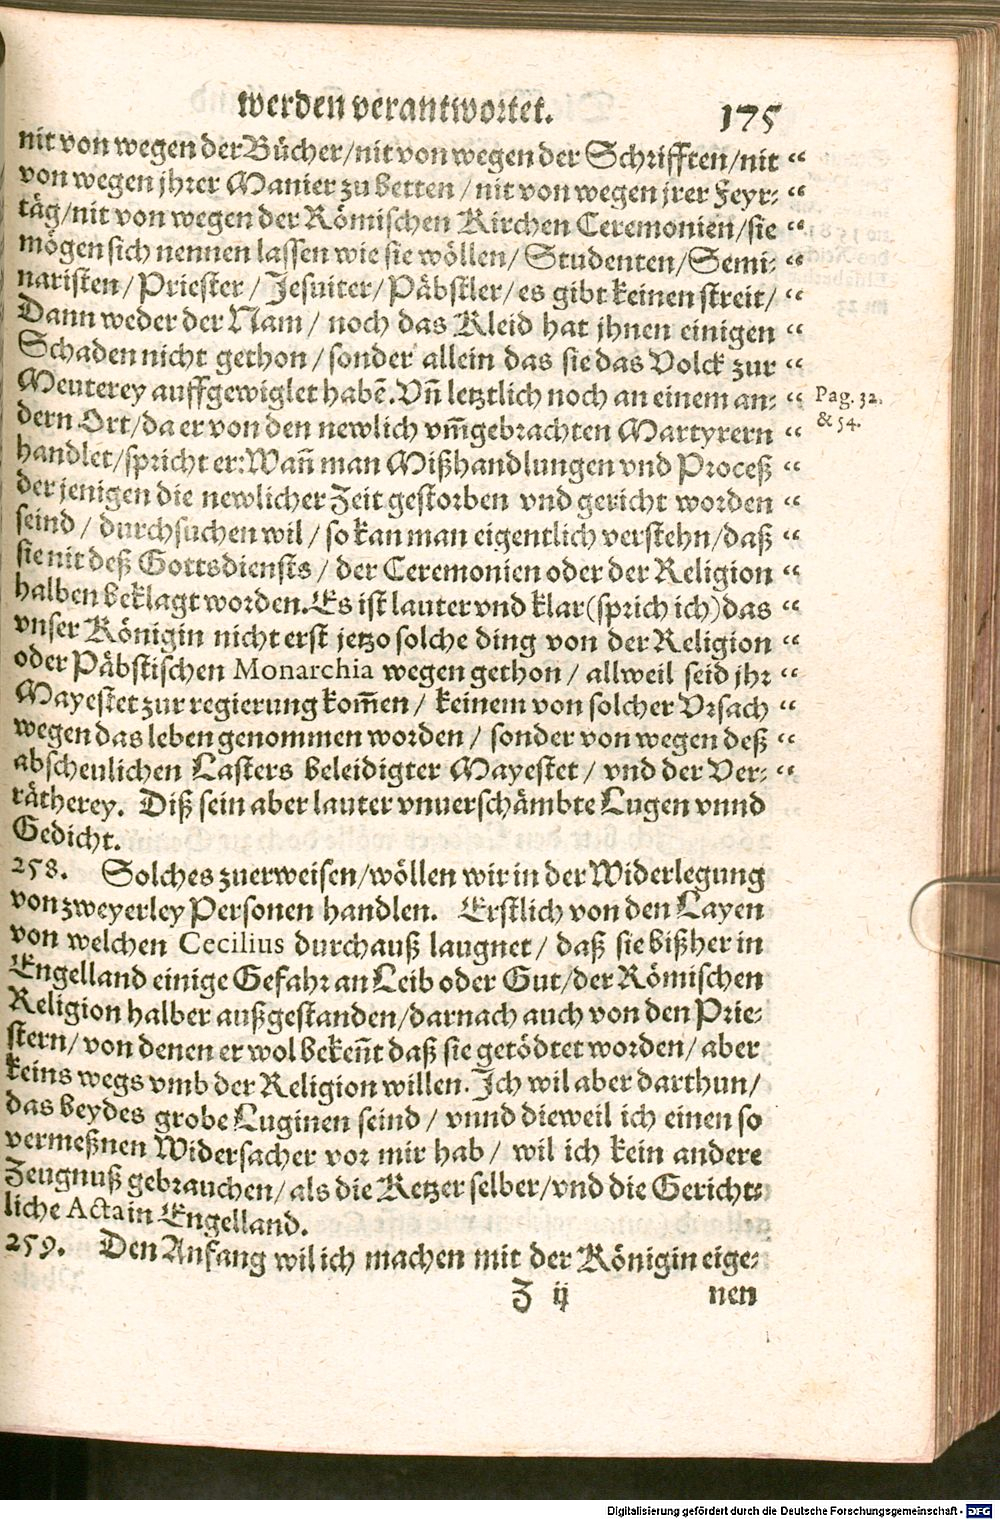 werden verantwortet. 175
nit von wegen der Bücher/nit von wegen der Schrifften/nit “
von wegen jhrer Manier zu betten/nit von wegen jrer Feyr⸗ “
täg/nit von wegen der Römischen Kirchen Ceremonien/sie “
mögen sich nennen lassen wie sie wöllen/Studenten/Semi⸗ “
naristen/Priester/Jesuiter/Päbstler/es gibt keinen streit/ “
Dann weder der Nam/noch das Kleid hat jhnen einigen “
Schaden nicht gethon/sonder allein das sie das Volck zur “
Meuterey auffgewiglet habē. Vñ letztlich noch an einem an⸗ “ Pag. 32.
dern Ort/da er von den newlich vm̃gebrachten Martyrern “ & 54.
handlet/spricht er: Wañ man Mißhandlungen vnd Proceß “
der jenigen die newlicher Zeit gestorben vnd gericht worden “
seind/durchsuchen wil/so kan man eigentlich verstehn/daß “
sie nit deß Gottsdiensts/der Ceremonien oder der Religion “
halben beklagt worden. Es ist lauter vnd klar (sprich ich) das “
vnser Königin nicht erst jetzo solche ding von der Religion “
oder Päbstischen Monarchia wegen gethon/allweil seid jhr “
Mayestet zur regierung kom̃en/keinem von solcher Vrsach “
wegen das leben genommen worden/sonder von wegen deß “
abscheulichen Lasters beleidigter Mayestet/vnd der Ver⸗ “
rätherey. Diß sein aber lauter vnuerschämbte Lugen vnnd
Gedicht.
258. Solches zuerweisen/wöllen wir in der Widerlegung
von zweyerley Personen handlen. Erstlich von den Layen
von welchen Cecilius durchauß laugnet/daß sie bißher in
Engelland einige Gefahr an Leib oder Gut/der Römischen
Religion halber außgestanden/darnach auch von den Prie⸗
stern/von denen er wol bekeñt daß sie getödtet worden/aber
keins wegs vmb der Religion willen. Ich wil aber darthun/
das beydes grobe Luginen seind/vnnd dieweil ich einen so
vermeßnen Widersacher vor mir hab/wil ich kein andere
Zeugnuß gebrauchen/als die Ketzer selber/vnd die Gericht⸗
liche Acta in Engelland.
259. Den Anfang wil ich machen mit der Königin eige⸗
Z ij nen
Digitalisierung gefördert durch die Deutsche Forschungsgemeinschaft - DFG